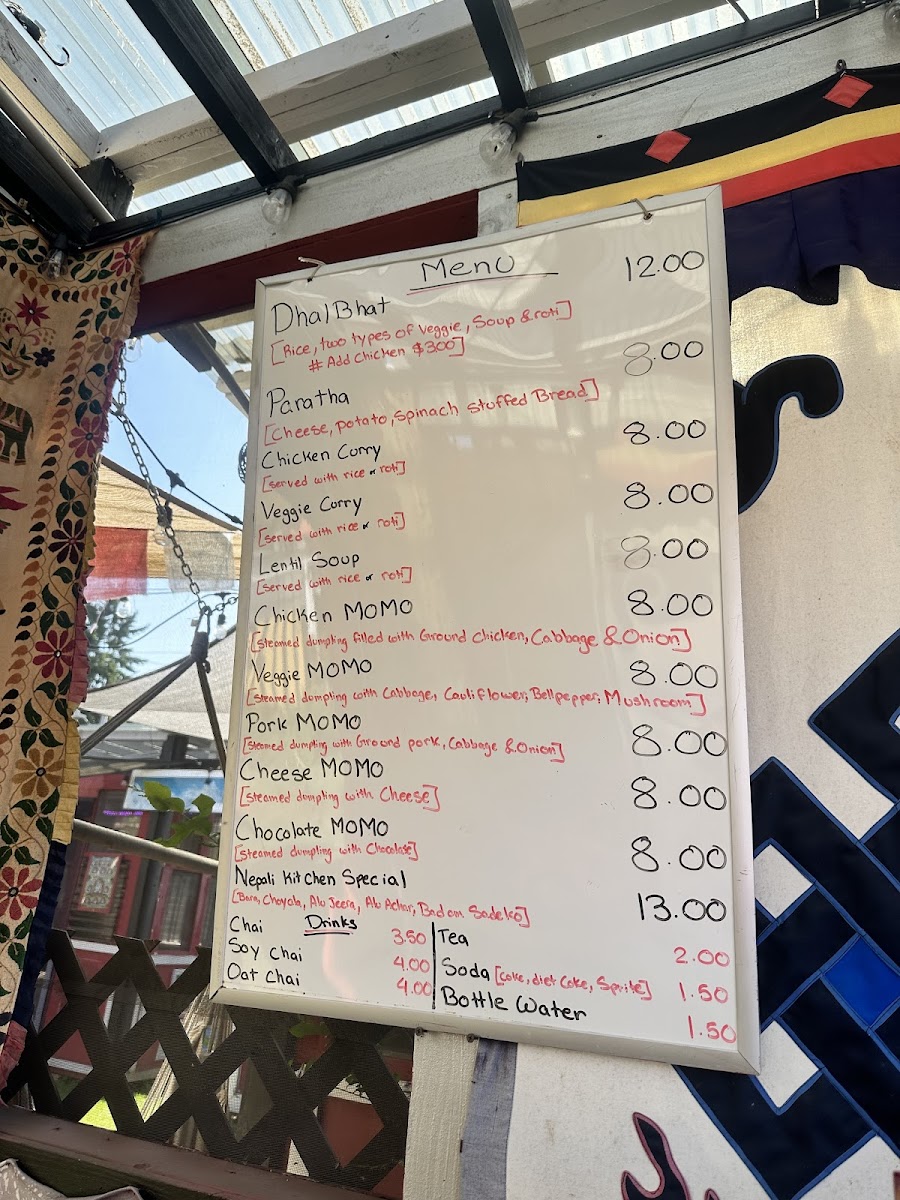 Menu
DhalBhat 12.00
[Rice, two types of Veggie, Soup & roti]
# Add Chicken $300]
Paratha 8.00
[Cheese, potato, Spinach stuffed Bread]
Chicken Curry 8.00
[served with rice or roti]
Veggie Curry 8.00
[served with rice or roti]
Lentil Soup 8.00
[served with rice or roti]
Chicken MOMO 8.00
[steamed dumpling filled with Ground Chicken, Cabbage & Onion]
Veggie MOMO 8.00
[steamed dumpling with Cabbage, Cauliflower, Bellpepper, Mushroom]
Pork MOMO 8.00
[steamed dumpling with Ground pork, Cabbage & Onion]
Cheese MOMO 8.00
[steamed dumpling with Cheese]
Chocolate MOMO 8.00
[steamed dumpling with Chocolate]
Nepali Kitchen Special 13.00
[Bara, Choyala, Alu Jeera, Alu Achar, Badam Sadeko]
Drinks
Chai 3.50
Soy Chai 4.00
Oat Chai 4.00
Tea 2.00
Soda [coke, diet Coke, Sprite] 1.50
Bottle Water 1.50